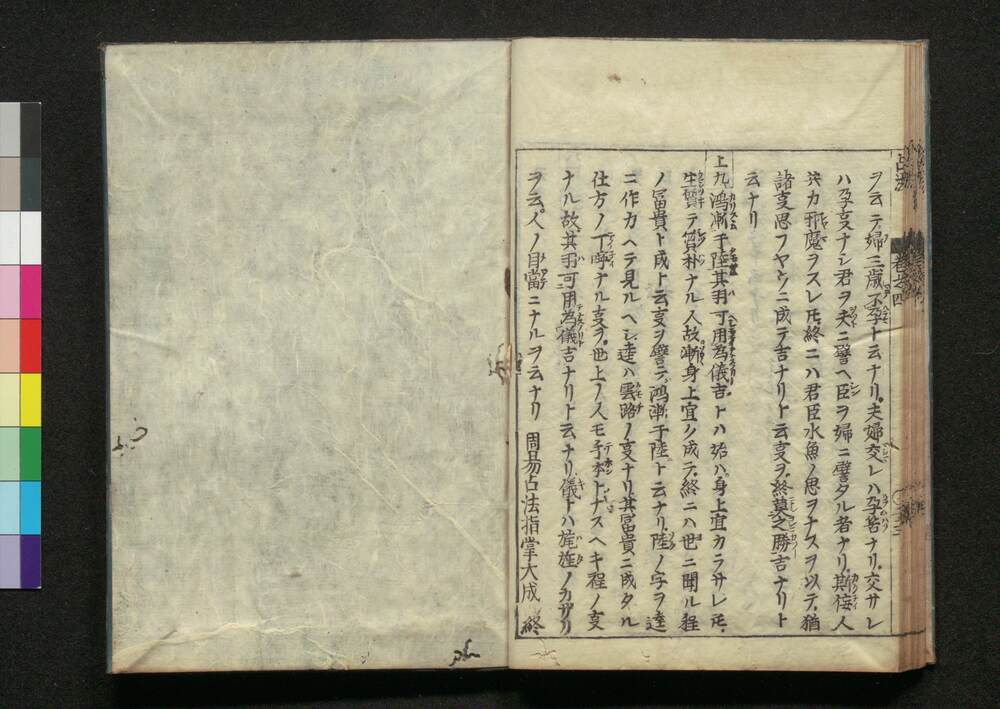 占法
卷之四
ヲ云テ婦三歳不孕ト云ナリ夫婦交レハ孕筈ナリ交サレ
ハ孕叓ナシ君ヲ夫ニ譬ヘ臣ヲ婦ニ譬タル者ナリ斯侫人
共カ邪魔ヲスレ𪜈終ニハ君臣水魚ノ思ヲナスヲ以テ猶
諸叓思フヤウニ成テ吉ナリト云叓ヲ終莫之勝吉ナリト
云ナリ
上九鴻漸于陸其羽可用為儀吉トハ始ハ身上宜カラサレ𪜈
生質テ質朴ナル人故漸身上宜ク成テ終ニハ世ニ聞ル程
ノ冨貴ト成ト云叓ヲ譬テ鴻漸于陸ト云ナリ陸ノ字ヲ逵
ニ作カヘテ見ルヘシ逵ハ雲路ノ叓ナリ其冨貴ニ成タル
仕方ノ丁寧ナル叓ヲ世上ノ人モ手本トナスヘキ程ノ叓
ナル故其羽可用為儀吉ナリト云ナリ儀トハ旄旌ノカザリ
ヲ云人ノ目當ニナルヲ云ナリ 周易占法指掌大成 終